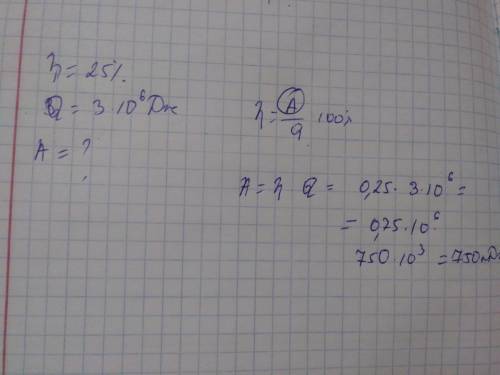 η = 25%.
Q = 3·10⁶ Дж
A = ?
η = A/Q 100%
A = η Q = 0,25 · 3·10⁶ =
= 0,75·10⁶
750·10³ = 750кДж